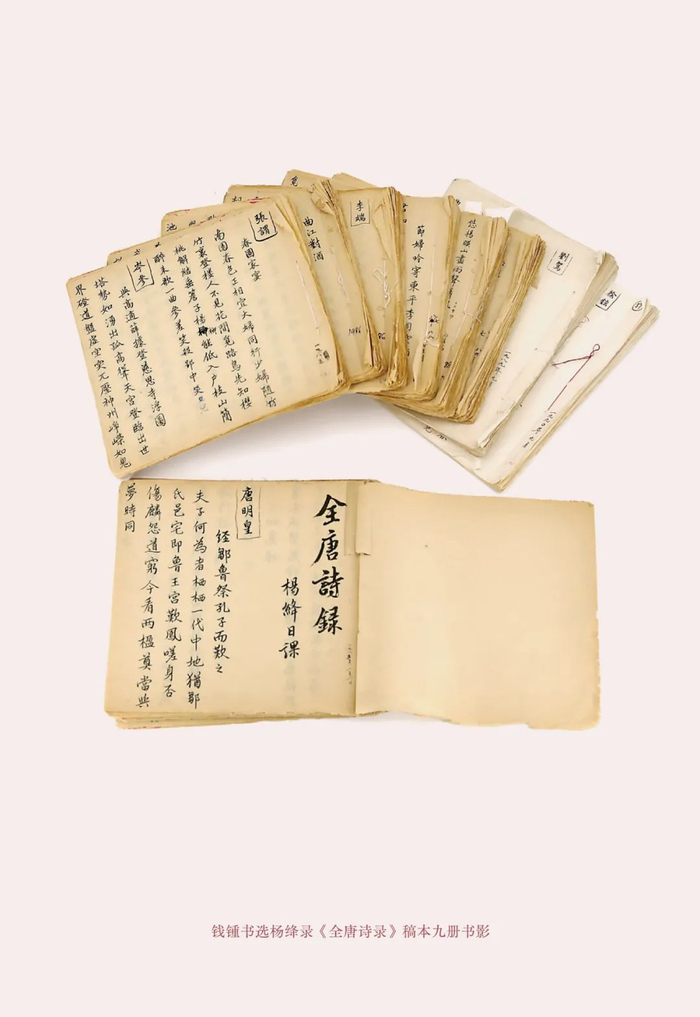 張謂
春園家宴
南園春色正相宜大婦同行少婦隨竹
竹裏登樓人不見花間覓路鳥先知櫻
桃解結垂簷子楊柳能低入戶枝山簡
醉來歌一曲參差笑殺郢中兒
岑參
與高適薛據登慈恩寺浮圖
塔勢如湧出孤高聳天宮登臨出世
界磴道盤虛空突兀壓神州崢嶸如鬼
曲江對酒
李端
節婦吟寄東平李司空
劉駕
徐鉉
全唐詩録
楊絳日課
唐明皇
經鄒魯祭孔子而歎之
夫子何為者栖栖一代中地猶鄹
氏邑宅即魯王宮歎鳳嗟身否
傷麟怨道窮今看兩楹奠當與
夢時同
钱锺书选杨绛录《全唐诗录》稿本九册书影